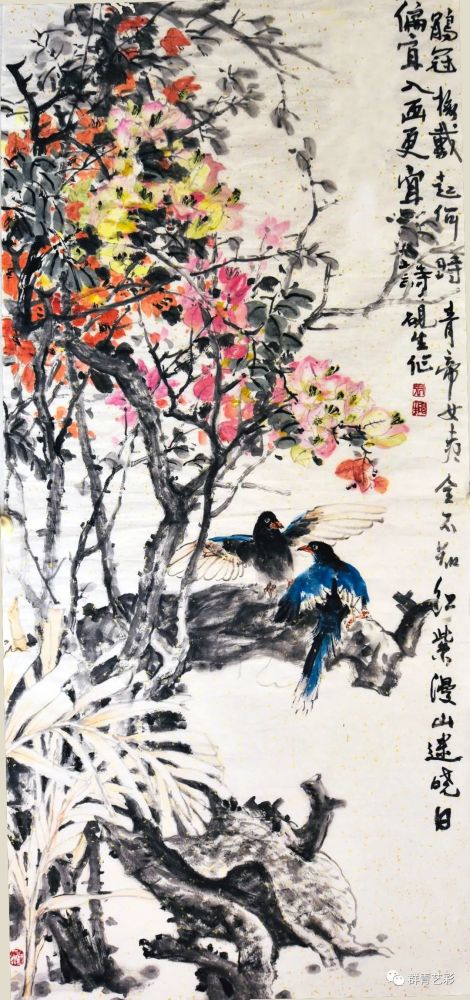 冠戴起何時青帝女夷全不知红紫漫山迷晓日
偏宜入画更宜诗砚生作
群青艺彩